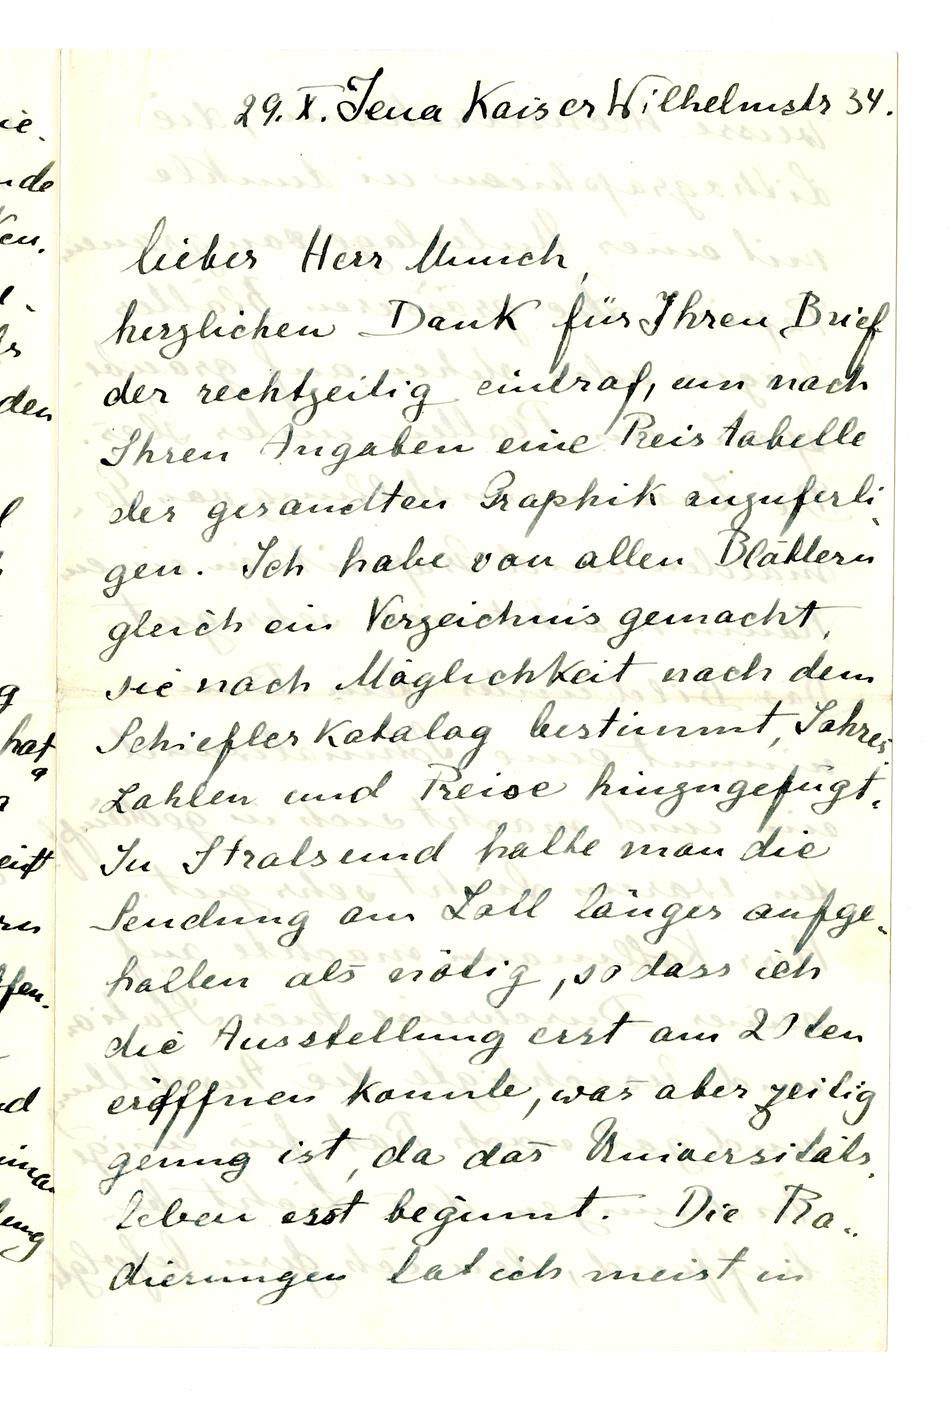 29. X. Jena Kaiser Wilhelmstr 34.
lieber Herr Munch,
herzlichen Dank für Ihren Brief
der rechtzeitig eintraf, um nach
Ihren Angaben eine Preistabelle
der gesandten Graphik anzuferti-
gen. Ich habe von allen Blättern
gleich ein Verzeichnis gemacht,
sie nach Möglichkeit nach dem
Schiefler Katalog bestimmt, Jahres-
zahlen und Preise hinzugefügt.
In Stralsund hatte man die
Sendung am Zoll länger aufge-
halten als nötig, so dass ich
die Ausstellung erst am 20ten
eröffnen konnte, was aber zeitig
genug ist, da das Universitäts-
leben erst beginnt. Die Ra-
dierungen tat ich meist in